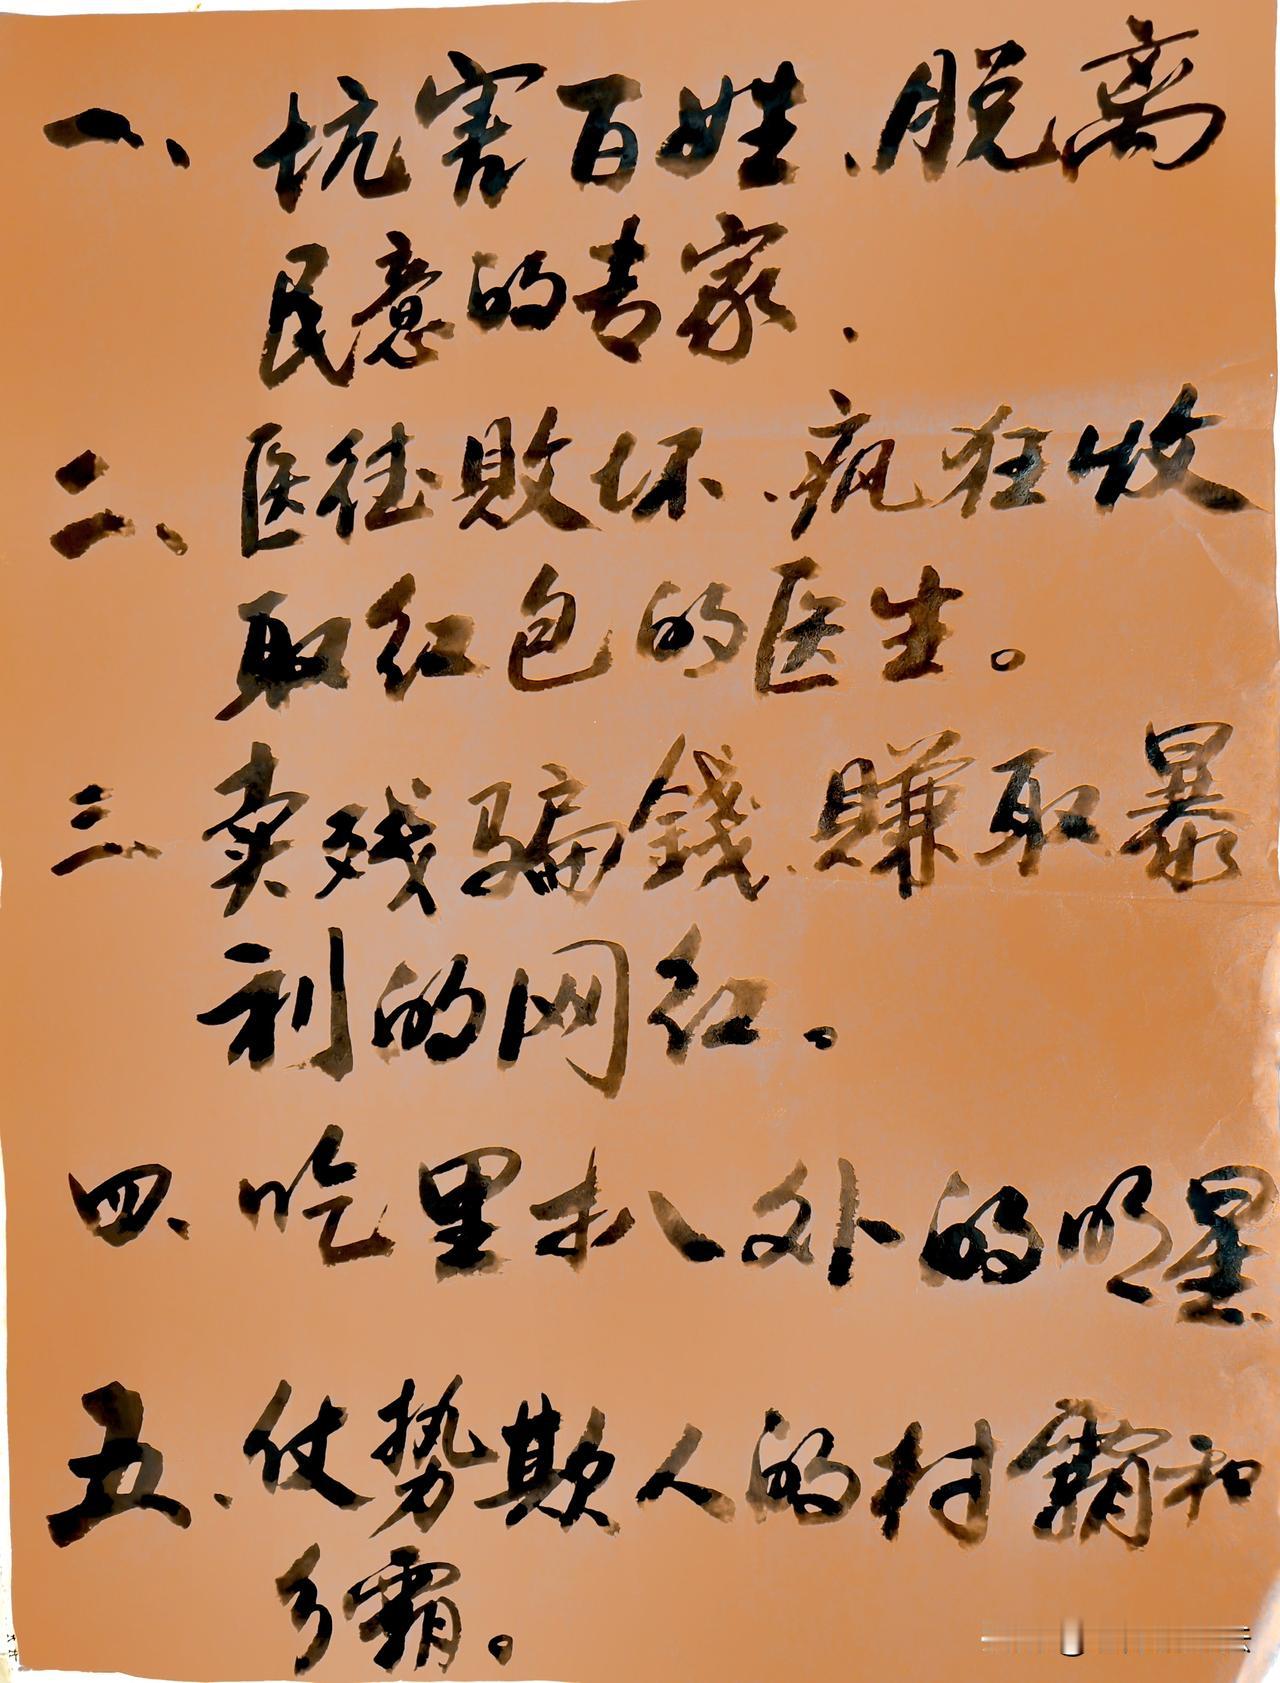 一、坑害百姓、脱离
民意的专家.
二、医德败坏、疯狂收
取红包的医生。
三、卖残骗錢、賺取暴
利的网红。
四、吃里扒外的明星
五、仗势欺人的村霸和
乡霸。